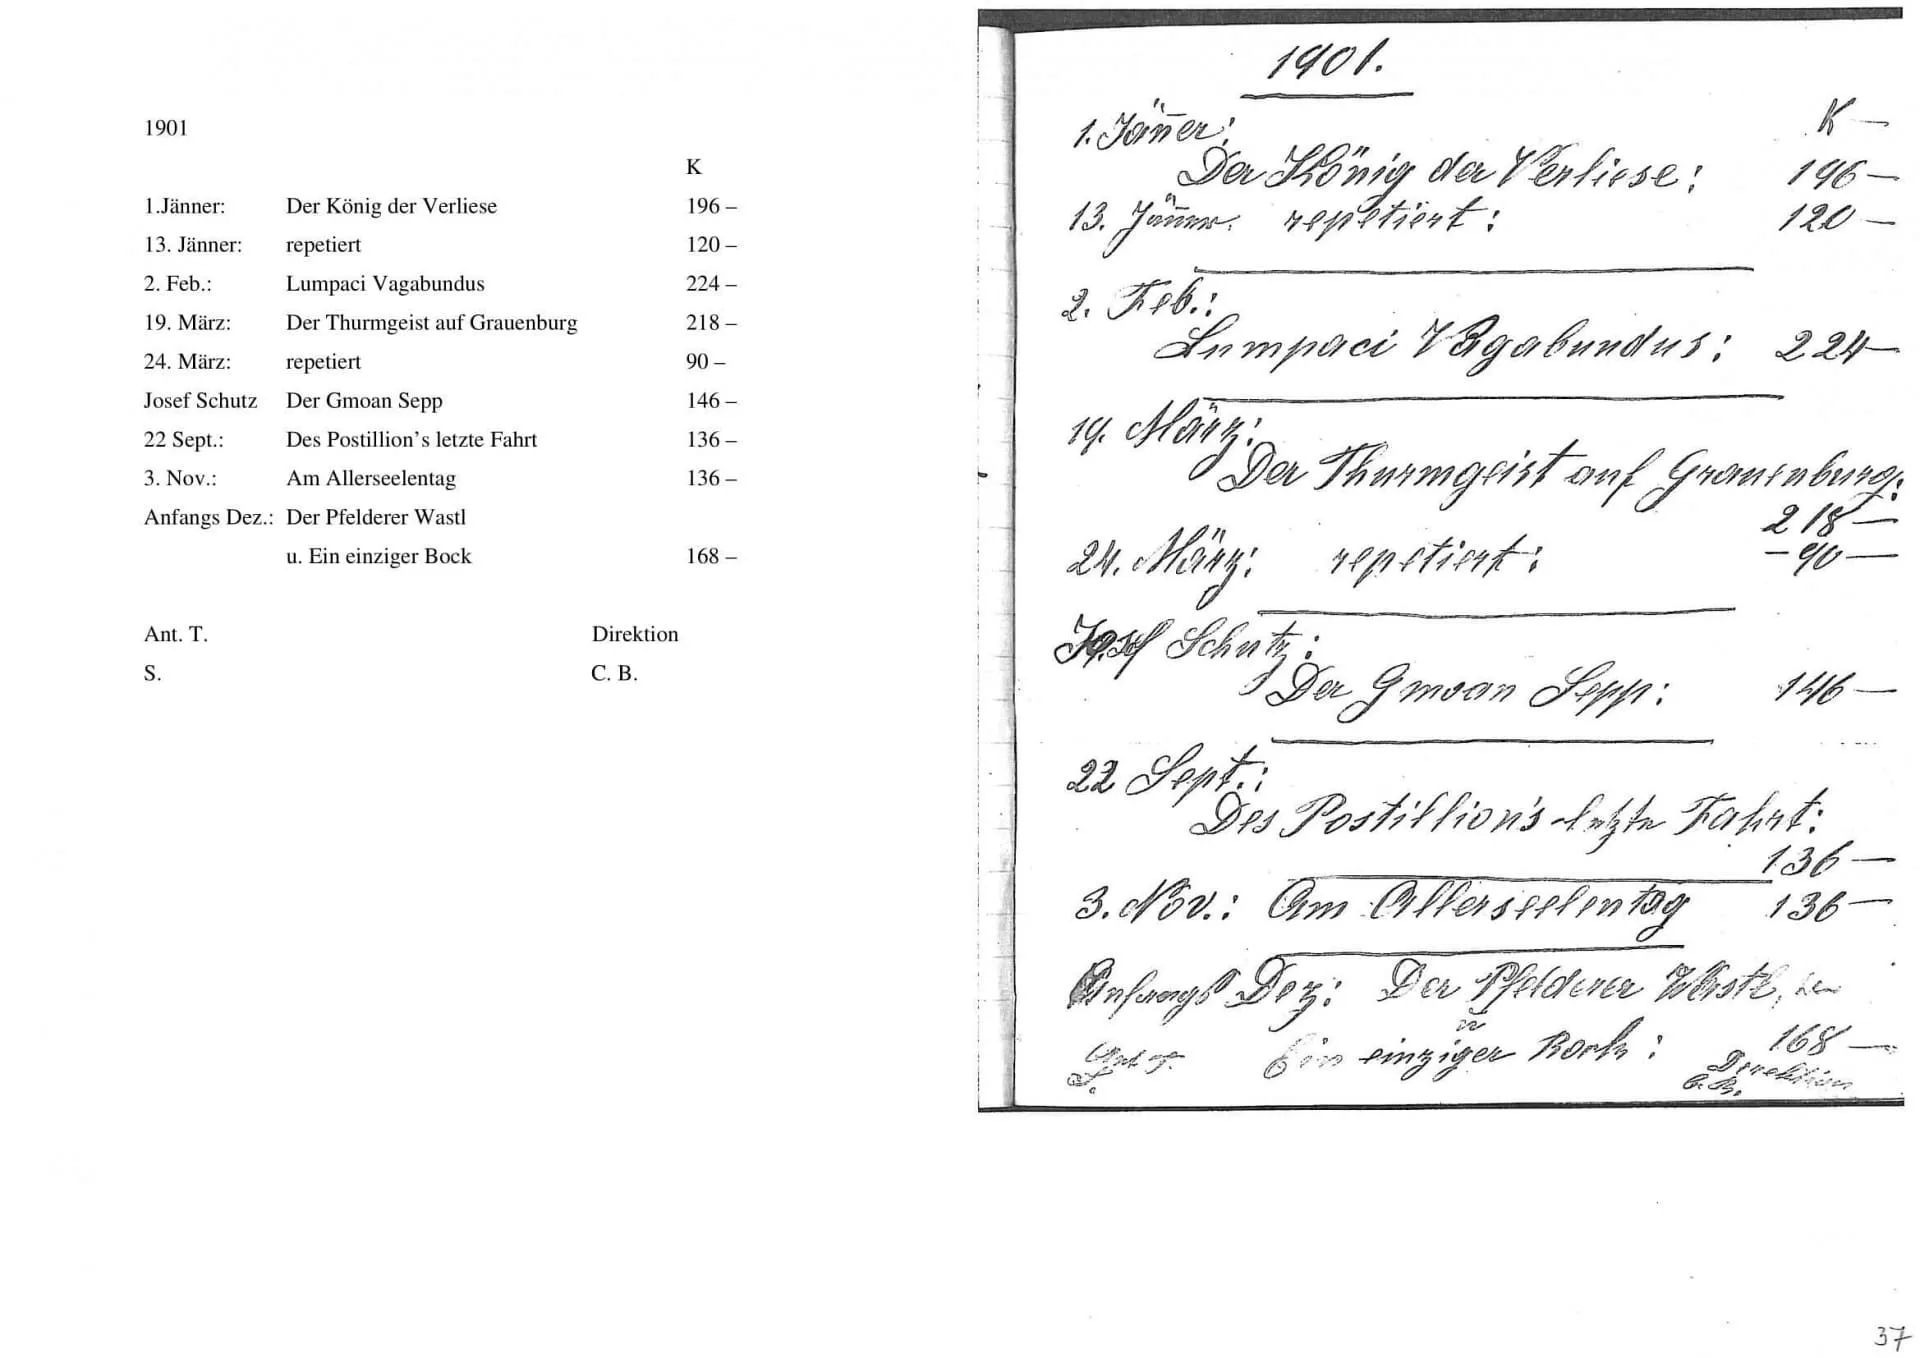 1901
K
1.Jänner: Der König der Verliese 196 –
13. Jänner: repetiert 120 –
2. Feb.: Lumpaci Vagabundus 224 –
19. März: Der Thurmgeist auf Grauenburg 218 –
24. März: repetiert 90 –
Josef Schutz Der Gmoan Sepp 146 –
22 Sept.: Des Postillion’s letzte Fahrt 136 –
3. Nov.: Am Allerseelentag 136 –
Anfangs Dez.: Der Pfelderer Wastl
u. Ein einziger Bock 168 –
Ant. T. Direktion
S. C. B.
1901.
1. Jänner: K —
Der König der Verliese: 196 —
13. Jänner. repetiert: 120 —
2. Feb.:
Lumpaci Vagabundus: 224 —
19. März:
Der Thurmgeist auf Grauenburg:
218 —
24. März: repetiert: – 90 —
Josef Schutz:
Der Gmoan Sepp: 146 —
22 Sept.:
Des Postillion's letzte Fahrt:
136 —
3. Nov.: Am Allerseelentag 136 —
Anfangs Dez: Der Pfelderer Wastl,
u
Ein einziger Bock: 168 —
Ant. T. Direktion
S. C. B.
37